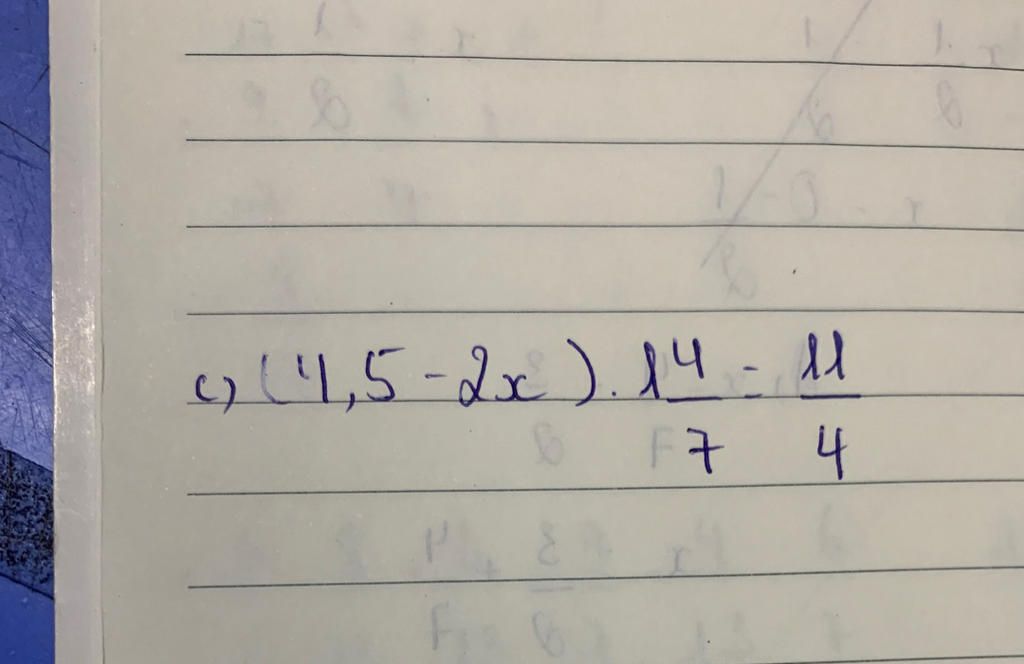 c) (4,5 - 2x) . 1 4/7 = 11/4